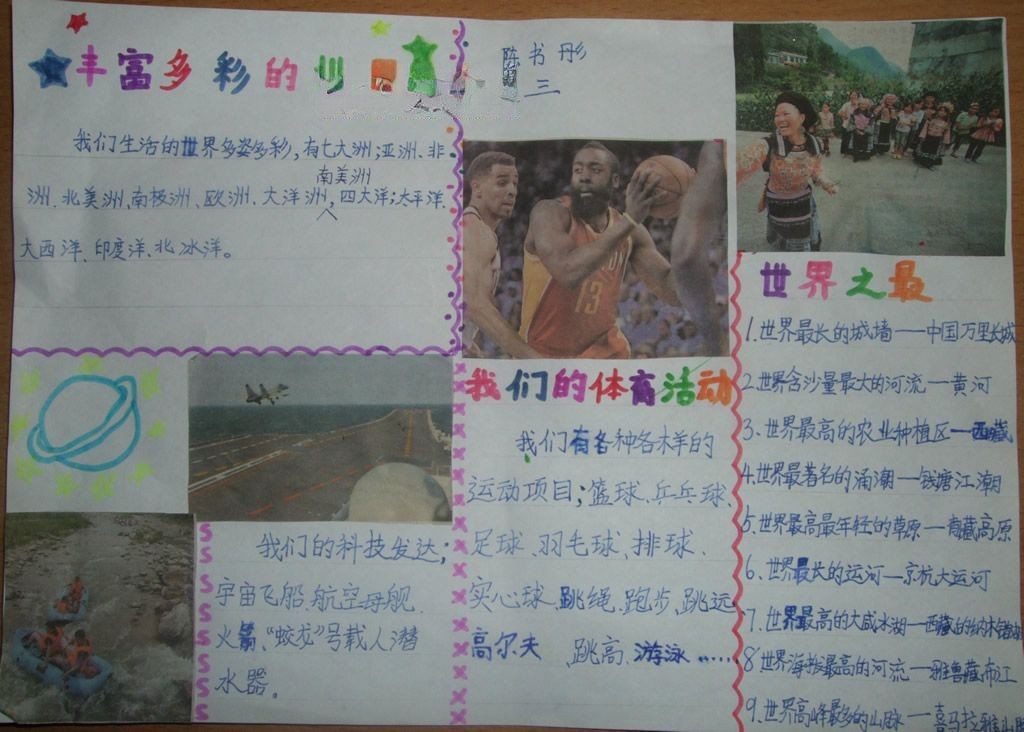 丰富多彩的
陈书彤
三
我们生活的世界多姿多彩,有七大洲;亚洲、非
南美洲
洲、北美洲、南极洲、欧洲、大洋洲,四大洋;太平洋、
大西洋、印度洋、北冰洋。
13
世界之最
1.世界最长的城墙——中国万里长城
2.世界含沙量最大的河流—黄河
3.世界最高的农业种植区—西藏
4.世界最著名的涌潮—钱塘江潮
5.世界最高最年轻的草原—青藏高原
6.世界最长的运河—京杭大运河
7.世界最高的大咸水湖—西藏的纳木错
8.世界海拔最高的河流—雅鲁藏布江
9.世界高峰最多的山脉—喜马拉雅山脉
我们的体育活动
我们有各种各样的
运动项目;篮球、乒乓球、
足球、羽毛球、排球、
实心球、跳绳、跑步、跳远
高尔夫 跳高、游泳……
我们的科技发达;
宇宙飞船、航空母舰、
火箭、“蛟龙”号载人潜
水器。